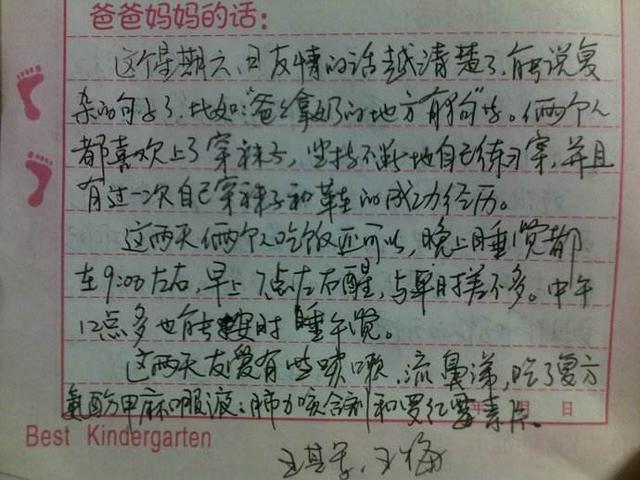 爸爸妈妈的话:
这个星期六、日友情的话越清楚了,能说复
杂的句子了,比如:"爸爸拿奶的地方有狗"等。俩个人
都喜欢上了穿袜子,坚持不断地自己练习穿,并且
有过一次自己穿袜子和鞋的成功经历。
这两天俩个人吃饭还可以,晚上睡觉都
在9:00左右,早上7点左右醒,与平时差不多。中午
12点多也能按时睡午觉。
这两天友爱有些咳嗽、流鼻涕,吃了复方
氨酚甲麻口服液、肺力咳合剂和罗红霉素片。
年 月 日
Best Kindergarten
王 王梅